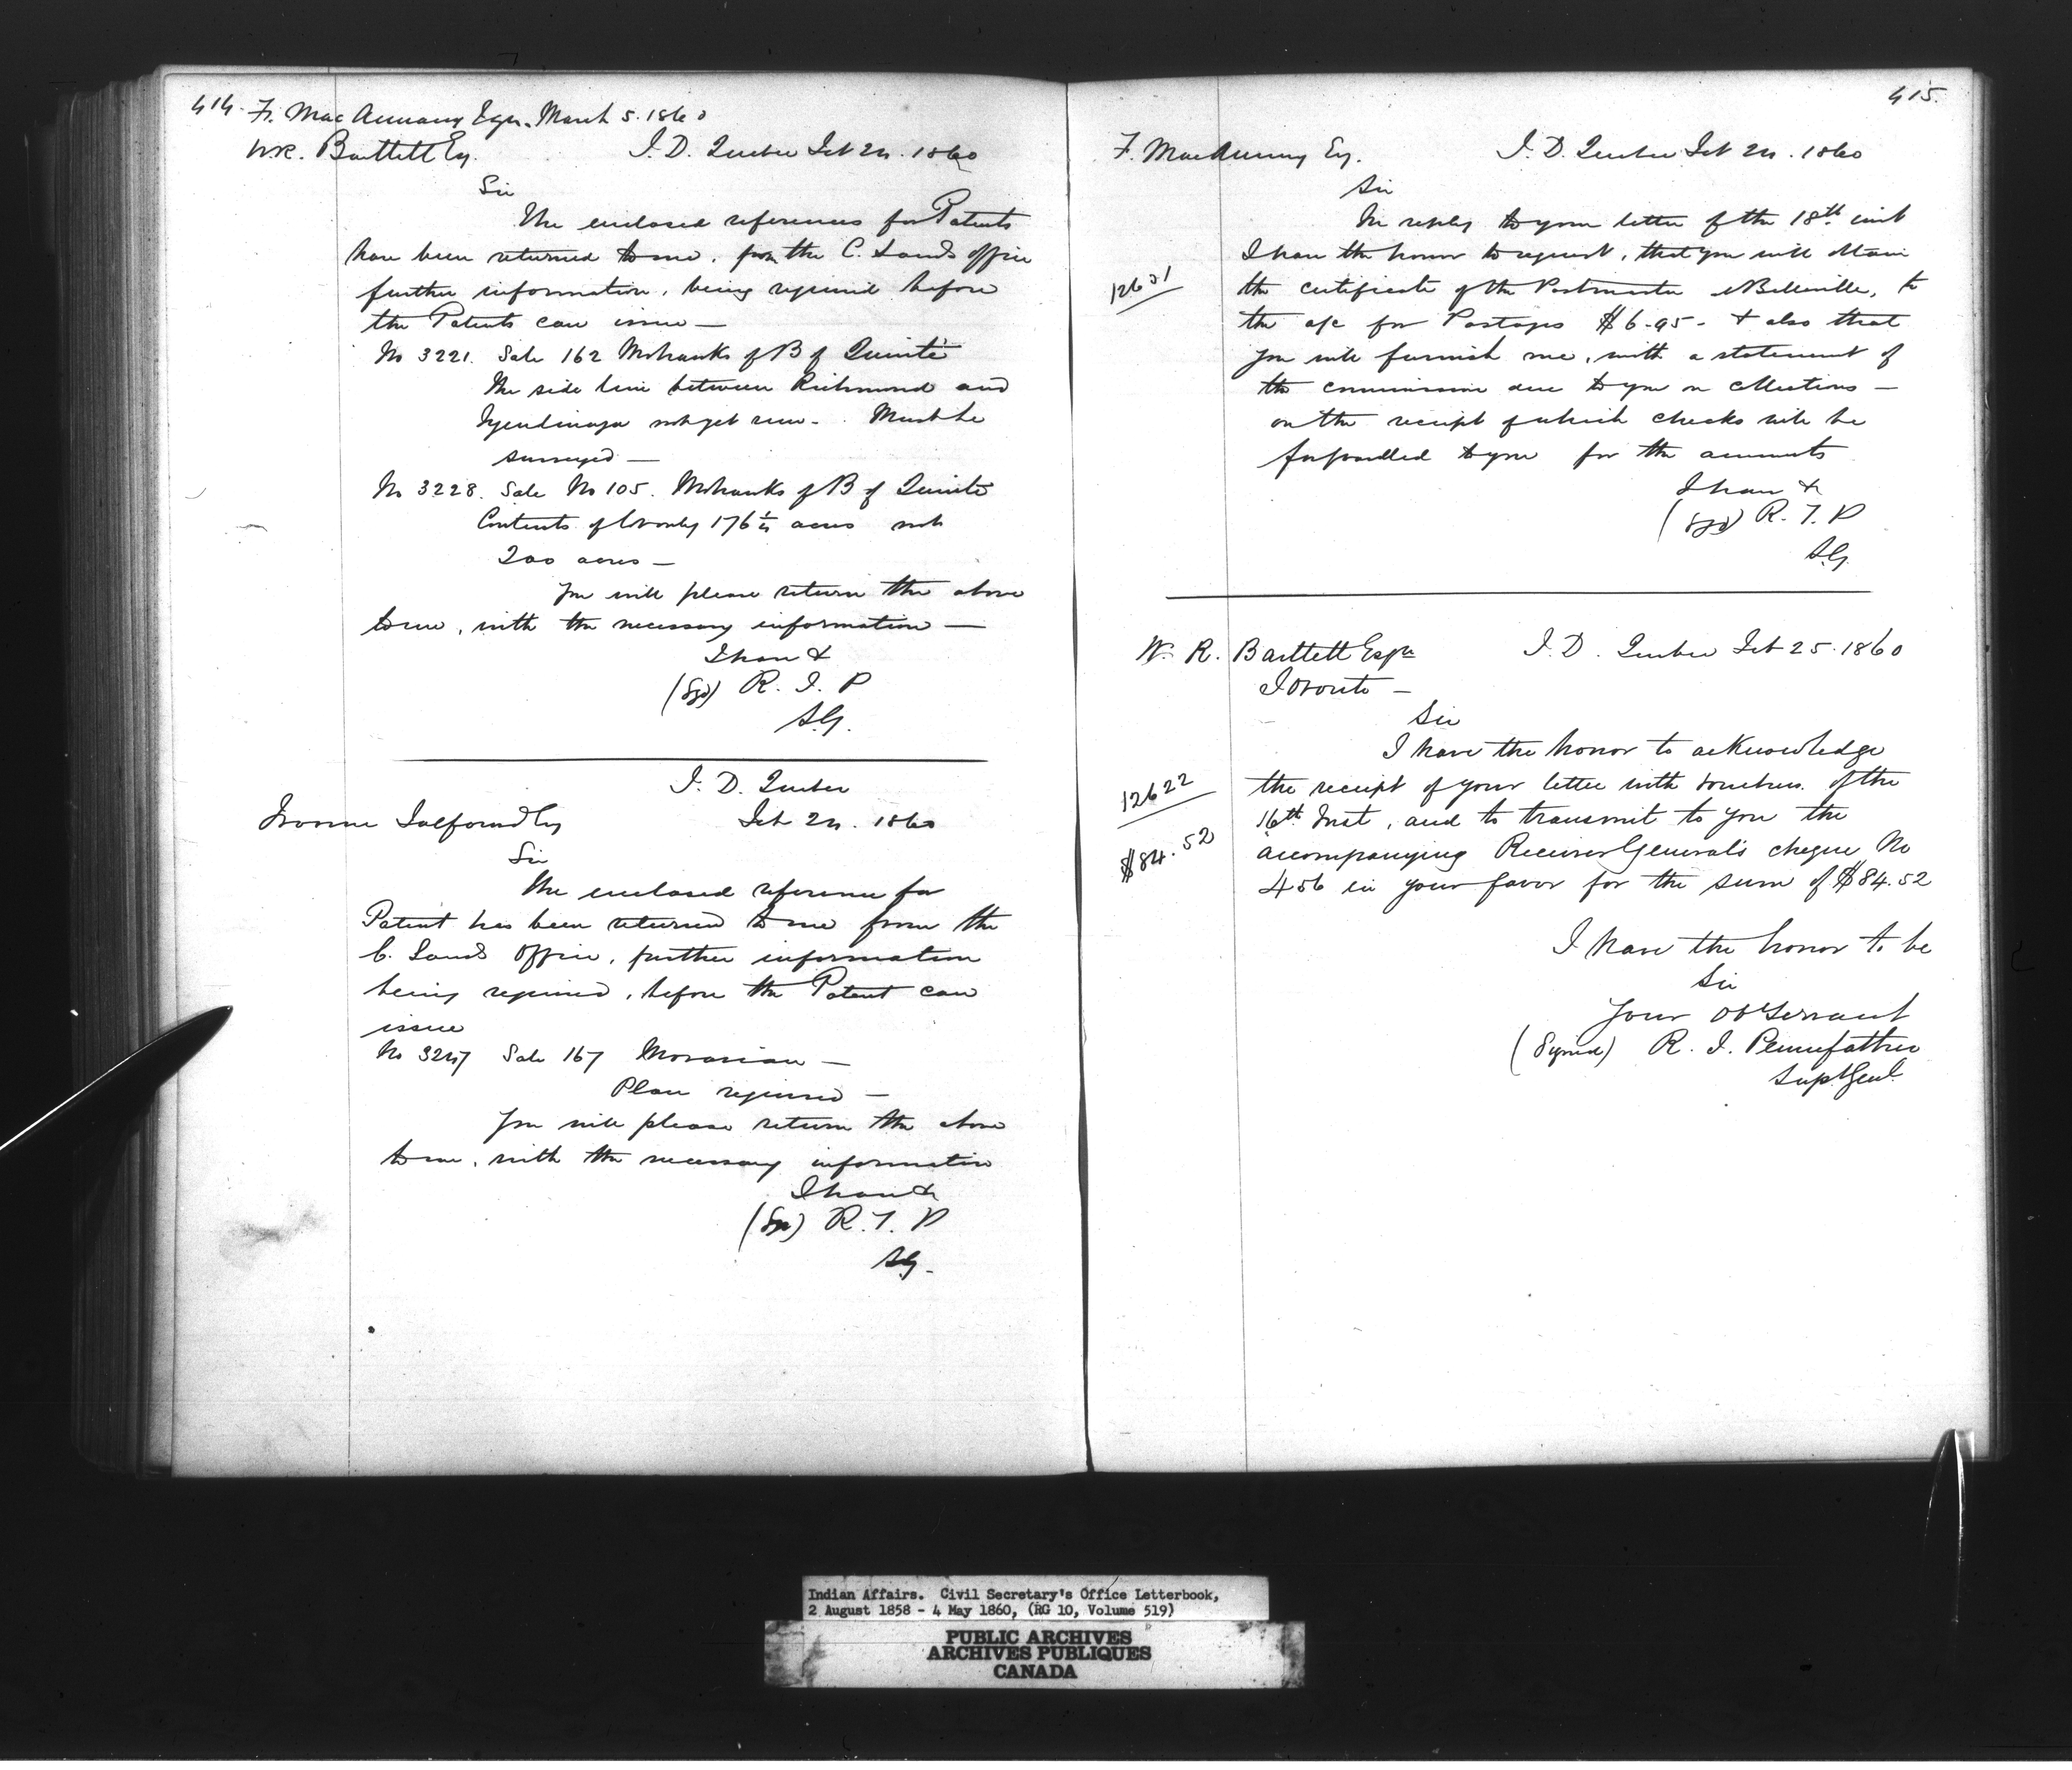 414. F. MacAnnany Esqr. March 5. 1860
W.R. Bartlett Esq. I. D. Quebec Feb 24. 1860
Sir
The enclosed references for Patents
have been returned to me, from the C. Lands Office
further information, being required before
the Patents can issue —
No 3221. Sale 162 Mohawks of B of Quinté
The side line between Richmond and
Tyendinaga not yet run. Must be
surveyed —
No 3228. Sale No 105. Mohawks of B of Quinté
Contents of only 176 1/4 acres not
200 acres —
You will please return the above
to me, with the necessary information —
I have &
(Sgd) R. T. P
S.G.
I. D. Quebec
Froome Talfourd Esq Feb 24. 1860
Sir
The enclosed reference for
Patent has been returned to me from the
C. Lands Office, further information
being required, before the Patent can
issue
No 3247 Sale 167 Moravian —
Plan required —
You will please return the above
to me, with the necessary information
I have &
(Sgd) R. T. P
S.G.
415.
F. MacAnnany Esq. I. D. Quebec Feb 24. 1860
Sir
In reply to your letter of the 18th inst
I have the honor to request, that you will obtain
12631
the certificate of the Postmaster at Belleville, to
the a/c for Postages $6.95 - & also that
you will furnish me, with a statement of
the commission due to you on collections —
on the receipt of which checks will be
forwarded to you for the amounts
I have &
(Sgd) R. T. P
S.G.
W. R. Bartlett Esqre I. D. Quebec Feb 25. 1860
Toronto —
Sir
I have the honor to acknowledge
12622
the receipt of your letter with vouchers of the
16th Inst, and to transmit to you the
$84.52
accompanying Receiver General's cheque No
456 in your favor for the sum of $84.52
I have the honor to be
Sir
Your Obt Servant
(Signed) R. T. Pennefather
Supt Genl.
Indian Affairs. Civil Secretary's Office Letterbook,
2 August 1858 - 4 May 1860, (RG 10, Volume 519)
PUBLIC ARCHIVES
ARCHIVES PUBLIQUES
CANADA